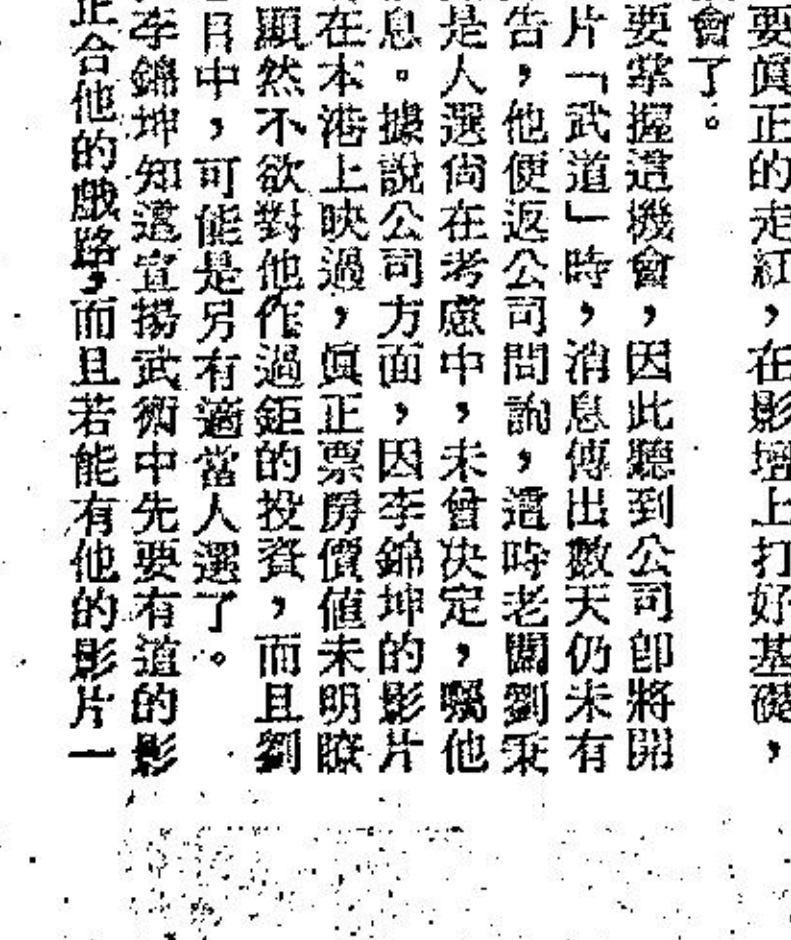 要眞正的走紅，在影壇上打好基礎，
會了。
要掌握這機會，因此聽到公司卽將開
片「武道」時，消息傳出數天仍未有
告，他便返公司問詢，這時老闆劉秉
是人選尙在考慮中，未曾決定，囑他
息。據說公司方面，因李錦坤的影片
在本港上映過，眞正票房價值未明瞭
顯然不欲對他作過鉅的投資，而且劉
目中，可能是另有適當人選了。
李錦坤知道宣揚武術中先要有道的影
正合他的戲路，而且若能有他的影片一